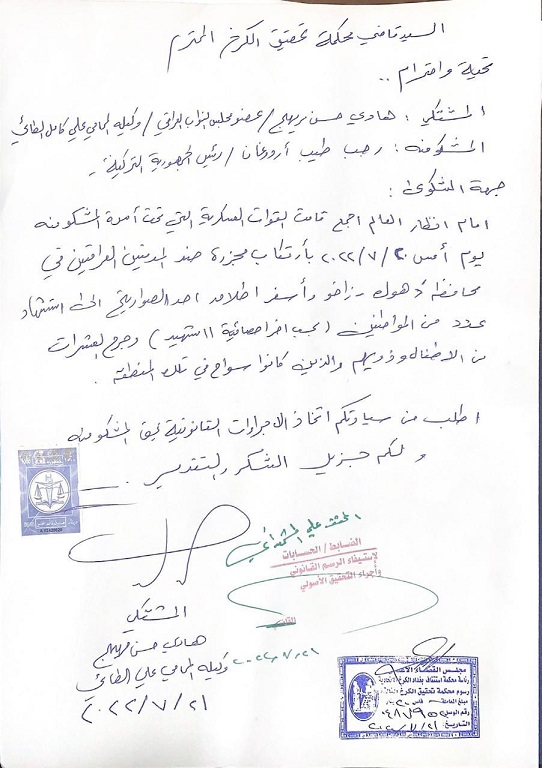 السيد قاضي محكمة تحقيق الكرخ المحترم
تحية واحترام ..
المشتكي : هادي حسن / عضو مجلس النواب العراقي / وكيله المحامي علي كامل الطائي
المشكو منه : رجب طيب أردوغان / رئيس الجمهورية التركية .
جهة الشكوى :
امام انظار العالم اجمع قامت القوات العسكرية التي تحت أمرة المشكو منه
يوم أمس ٢٠٢٢/٧/٢٠ بأرتكاب مجزرة ضد المدنيين العراقيين في
محافظة دهوك - زاخو وأسفر اطلاق احد الصواريخ الى استشهاد
عدد من المواطنين ( بحسب اخر احصائية ١١ شهيد ) وجرح العشرات
من الاطفال وذويهم والذين كانوا سواح في تلك المنطقة .
اطلب من سيادتكم اتخاذ الاجراءات القانونية بحق المشكو منه
ولكم جزيل الشكر والتقدير ..
الضابط / الحسابات
لاستيفاء الرسم القانوني
وأجراء التحقيق الأصولي
القاضي
المشتكي
هادي حسن
وكيله المحامي علي الطائي
٢٠٢٢/٧/٢١
٢٠٢٢/٧/٢١
مجلس القضاء الأعلى
رئاسة محكمة استئناف بغداد الكرخ الاتحادية
رسوم محكمة تحقيق الكرخ
رقم الوصل
التاريخ